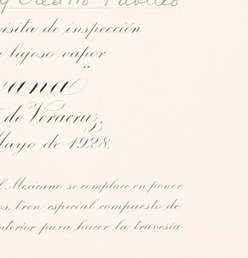 y Crédito Público
visita de inspección
lujoso vapor
vana"
de Veracruz,
Mayo de 1928.
Mexicano se complace en poner
os, tren especial compuesto de
nterior para hacer la travesía